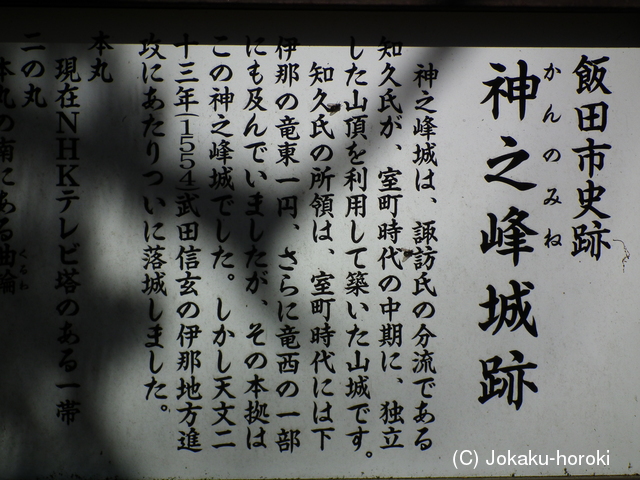 飯田市史跡
かんのみね
神之峰城跡
神之峰城は、諏訪氏の分流である
知久氏が、室町時代の中期に、独立
した山頂を利用して築いた山城です。
知久氏の所領は、室町時代には下
伊那の竜東一円、さらに竜西の一部
にも及んでいましたが、その本拠は
この神之峰城でした。しかし天文二
十三年(1554)武田信玄の伊那地方進
攻にあたりついに落城しました。
本丸
現在NHKテレビ塔のある一帯
二の丸
本丸の南にある曲輪
くるわ
(C) Jokaku-horoki